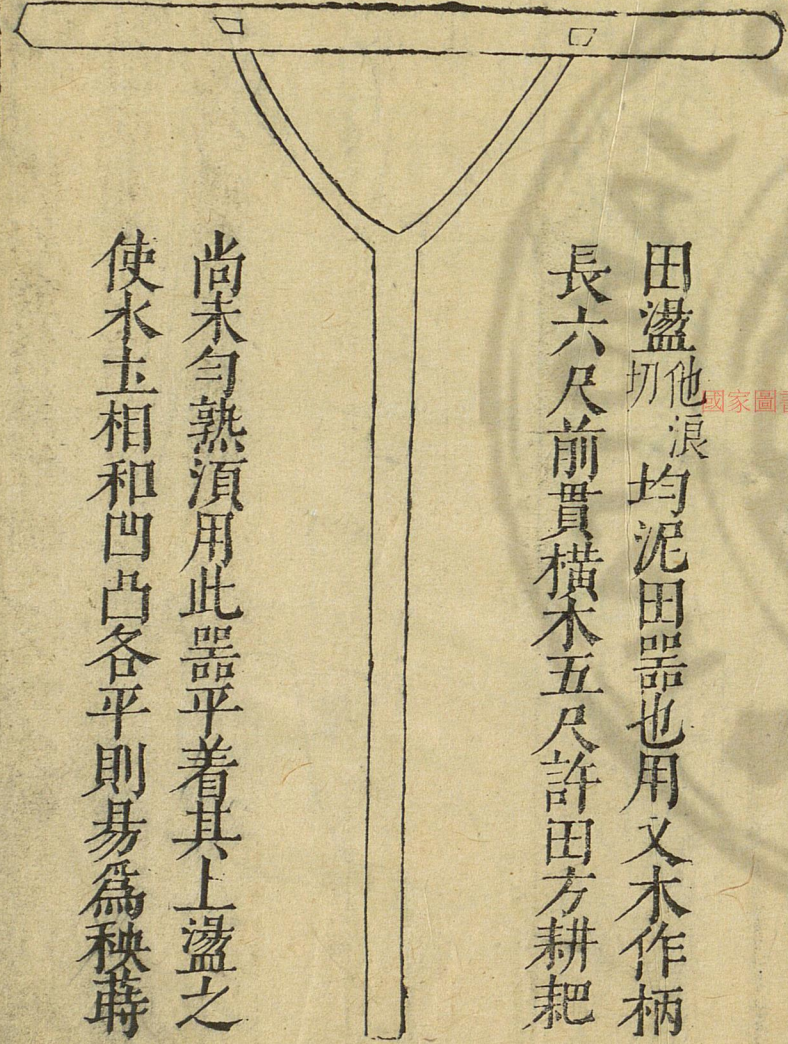 田盪他浪切均泥田噐也用叉木作柄
長六尺前貫橫木五尺許田方耕耙
尚未勻熟湏用此噐平着其上盪之
使水𡈽相和凹凸各平則易爲秧蒔
國家圖